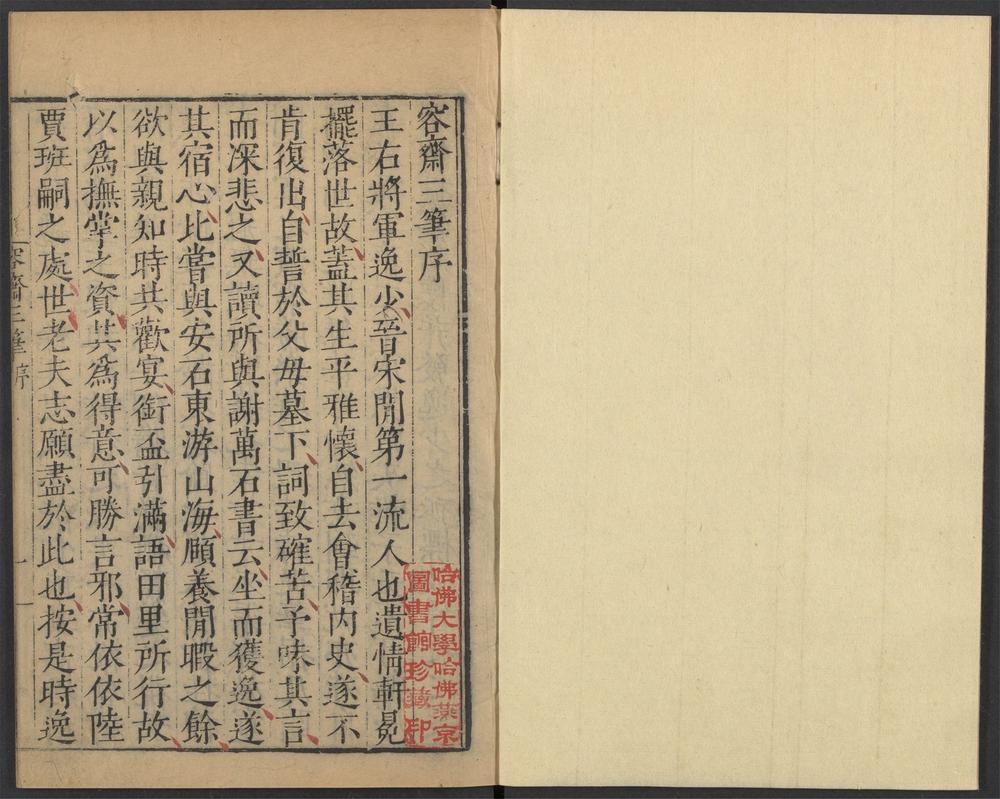 容齋三筆序
王右將軍逸少晉宋間第一流人也遺情軒冕
擺落世故蓋其生平雅懷自去會稽內史遂不
肯復出自誓於父母墓下詞致確苦予味其言
而深悲之又讀所與謝萬石書云坐而獲逸遂
其宿心比嘗與安石東游山海頤養閒暇之餘
欲與親知時共歡宴銜盃引滿語田里所行故
以爲撫掌之資其爲得意可勝言邪常依依陸
賈班嗣之處世老夫志願盡於此也按是時逸
容齋三筆序
一
哈佛大學哈佛燕京
圖書館珍藏印